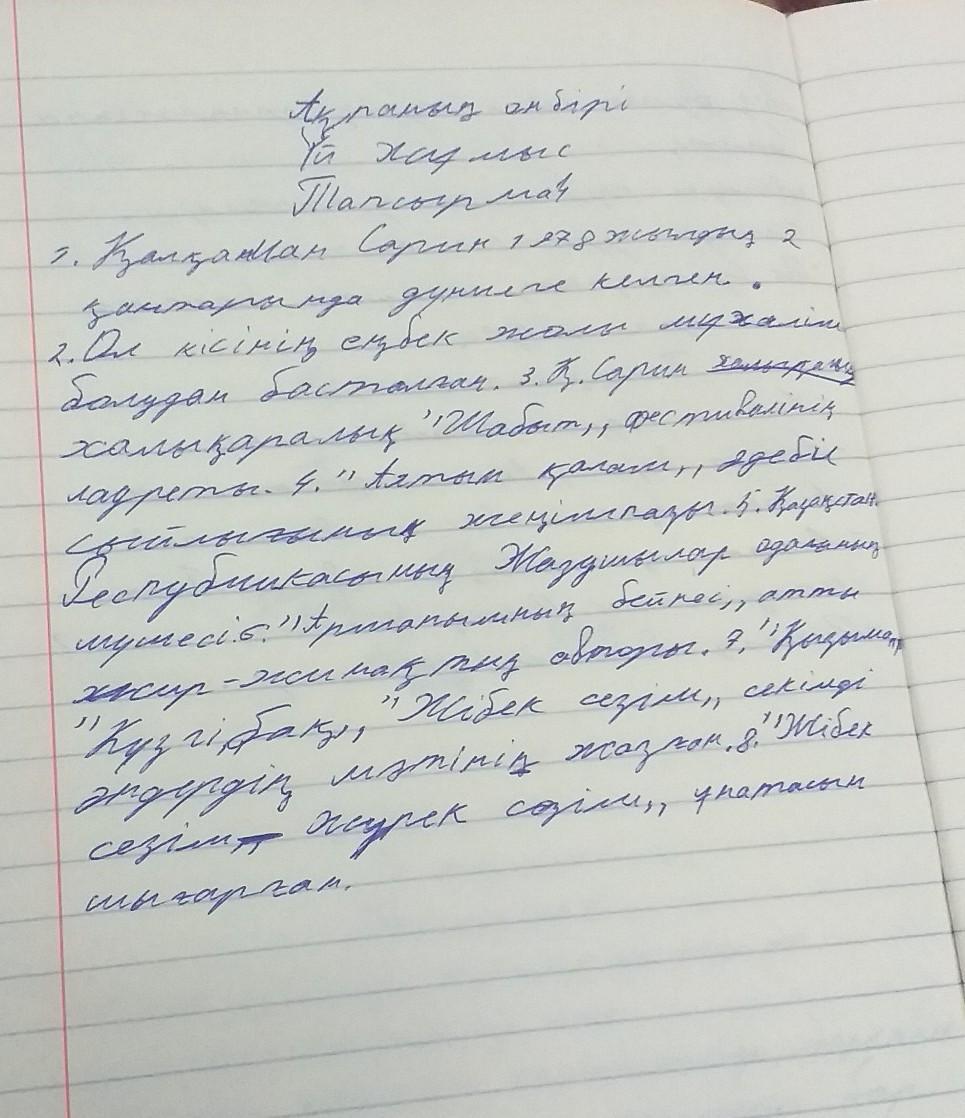 Ақпаның он бірі
Үй жұмыс
Тапсырма 4
1. Қалқаман Сарин 1978 жылдың 2
қантарында дүниеге келген.
2. Ол кісінің еңбек жолы мұғалім
болудан басталған. 3. Қ. Сарин
халықаралық "Шабыт,, фестивалінің
лауреты. 4. "Алтын қалам,, әдеби
сыйлығының жеңімпазы. 5. Қазақстан
Республикасының Жазушылар одағының
мүшесі. 6. "Арманымның бейнесі,, атты
жыр-жинақтың авторы. 7. "Қызыма,,
"Күзгі бақ,, "Жібек сезім,, секілді
әндердің мәтінің жазған. 8. "Жібек
сезім – жүрек сөзім,, ұнатасын
шығарған.